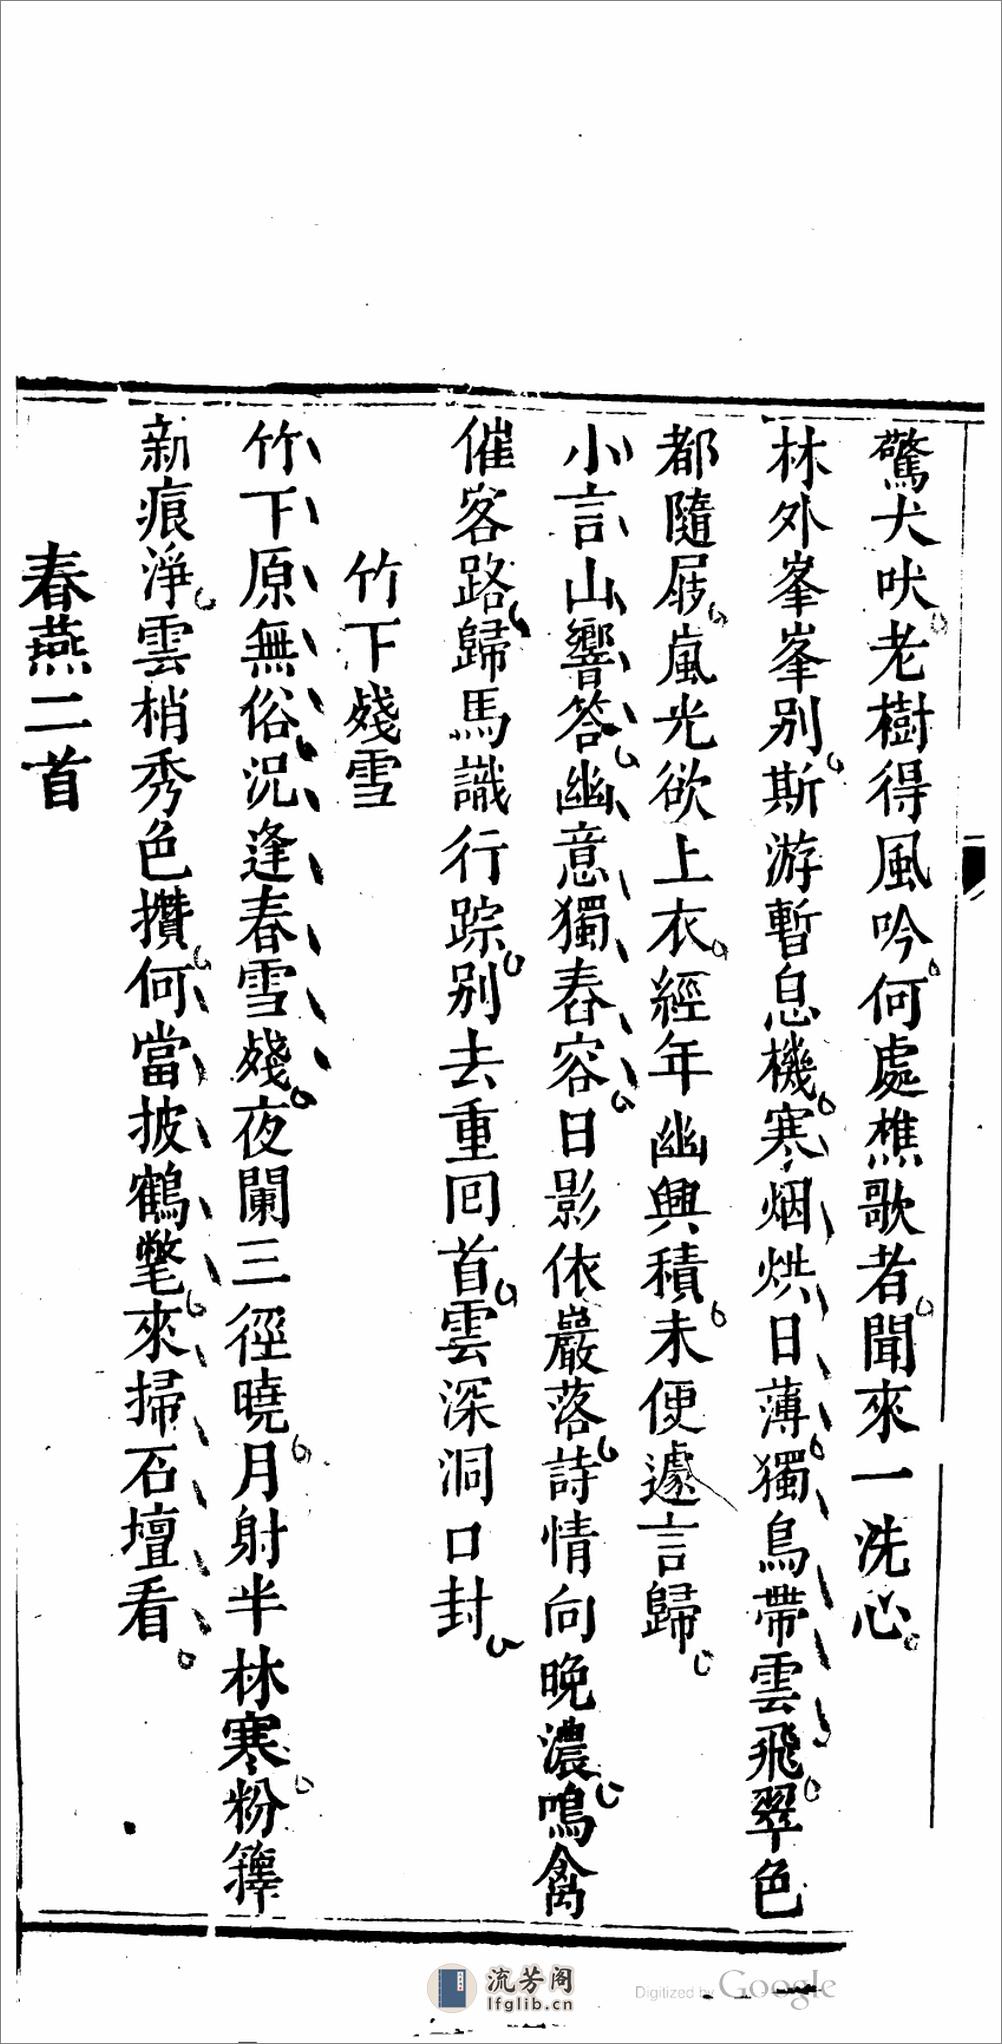 驚犬吠老樹得風吟何處樵歌者聞來一洗心
林外峯峯别斯游暫息機寒烟烘日薄獨鳥帶雲飛翠色
都隨屐嵐光欲上衣經年幽興積未便遽言歸
小言山響答幽意獨舂容日影依巖落詩情向晚濃鳴禽
催客路歸馬識行踪别去重回首雲深洞口封
竹下殘雪
竹下原無俗況逢春雪殘夜闌三徑曉月射半林寒粉籜
新痕淨雲梢秀色攢何當披鶴氅來掃石壇看
春燕二首
流芳阁
lfglib.cn
Digitized by Google